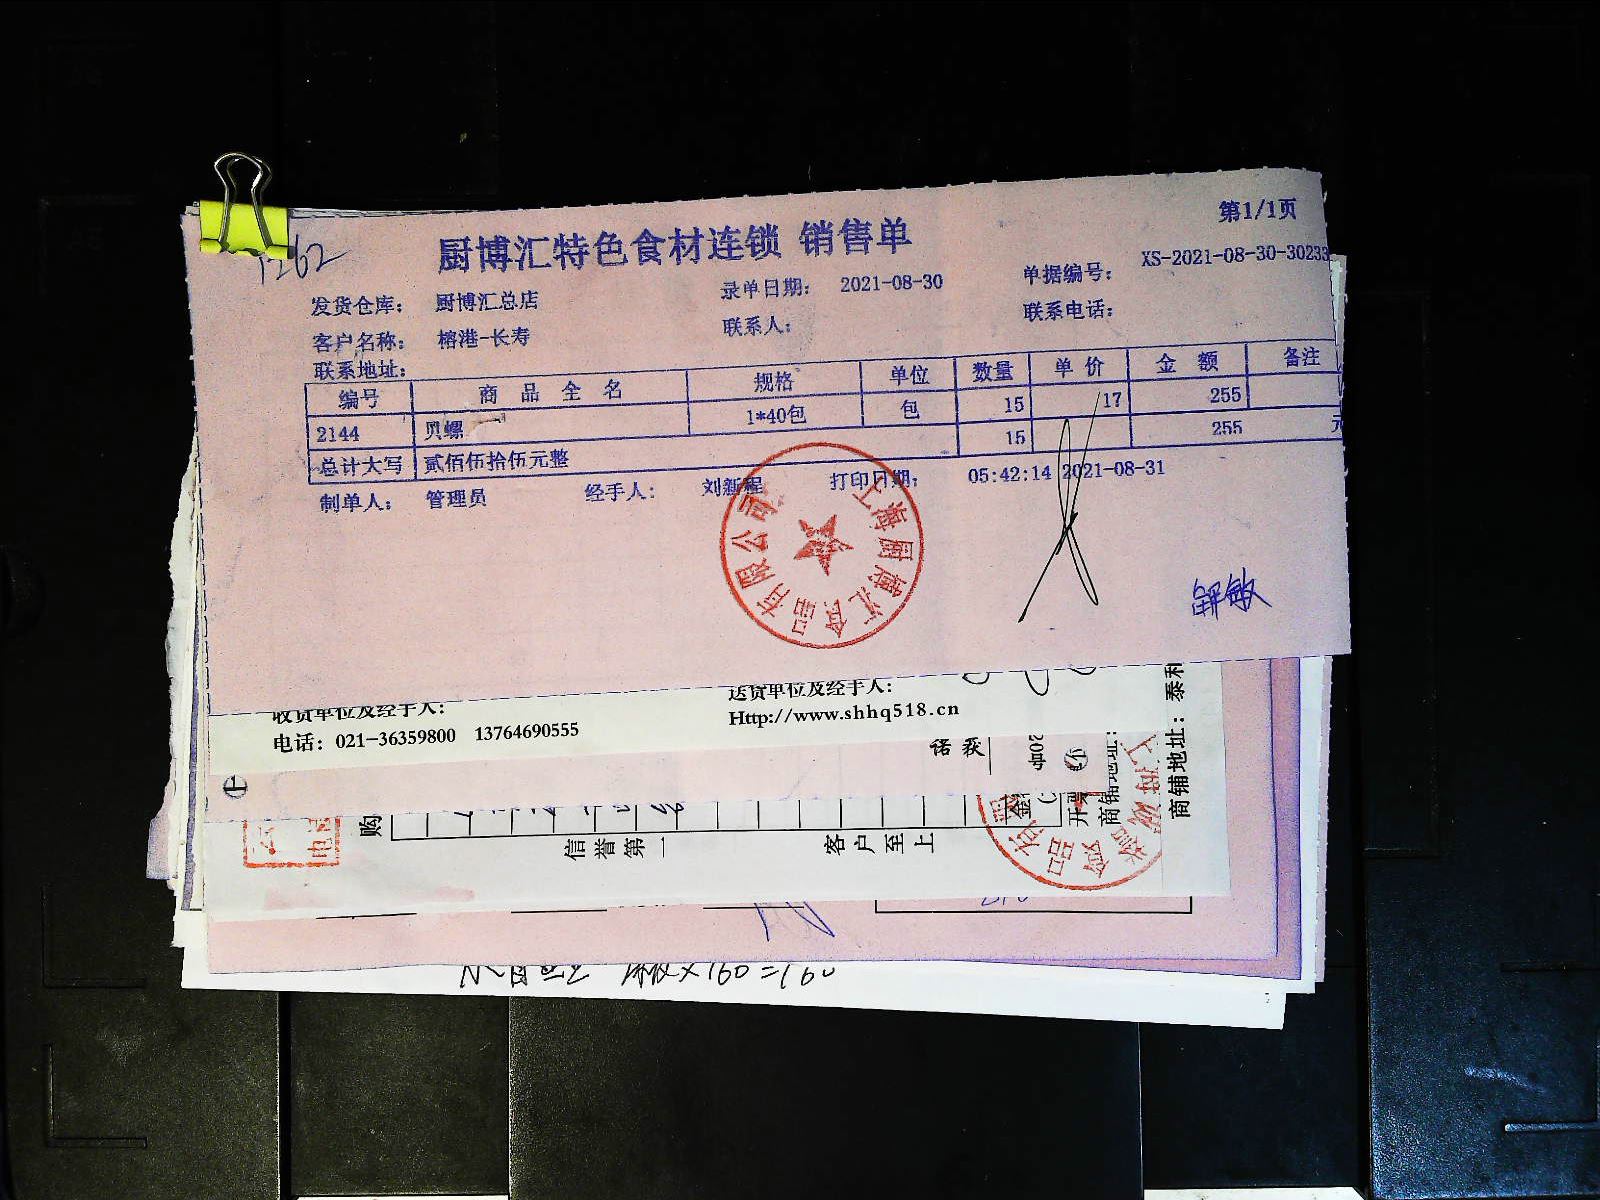 第1/1页
1262
厨博汇特色食材连锁 销售单
发货仓库： 厨博汇总店 录单日期： 2021-08-30 单据编号： XS-2021-08-30-30233
客户名称： 榕港-长寿 联系人： 联系电话：
联系地址：
编号 商 品 全 名 规格 单位 数量 单 价 金 额 备注
2144 贝螺 1*40包 包 15 17 255
15 255 元
总计大写 贰佰伍拾伍元整
制单人： 管理员 经手人： 刘新程 打印日期： 05:42:14 2021-08-31
上海厨博汇食品有限公司
收货单位及经手人：
送货单位及经手人：
电话：021-36359800 13764690555
Http://www.shhq518.cn
商铺地址：泰利
商铺地址：
开票
购
信誉第一
客户至上
×160=160